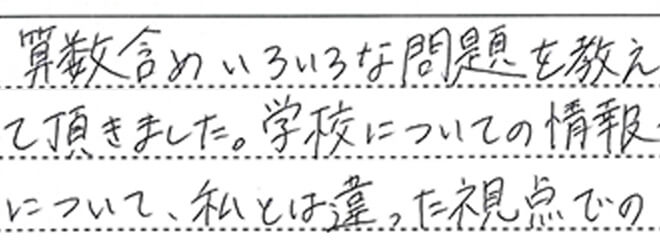 算数含めいろいろな問題を教え
て頂きました。学校についての情報
について、私とは違った視点での